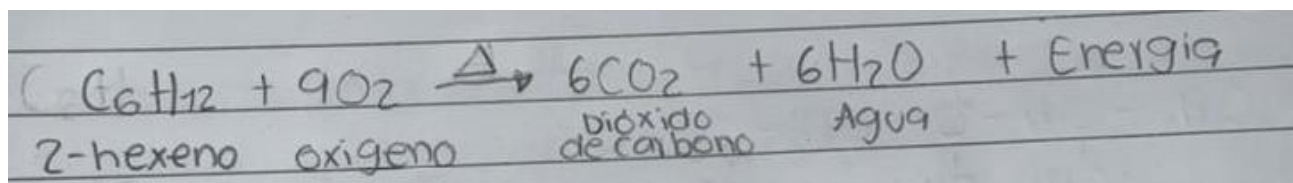 C6H12 + 9O2 Δ→ 6CO2 + 6H2O + Energia
2-hexeno oxigeno Dióxido de carbono Agua